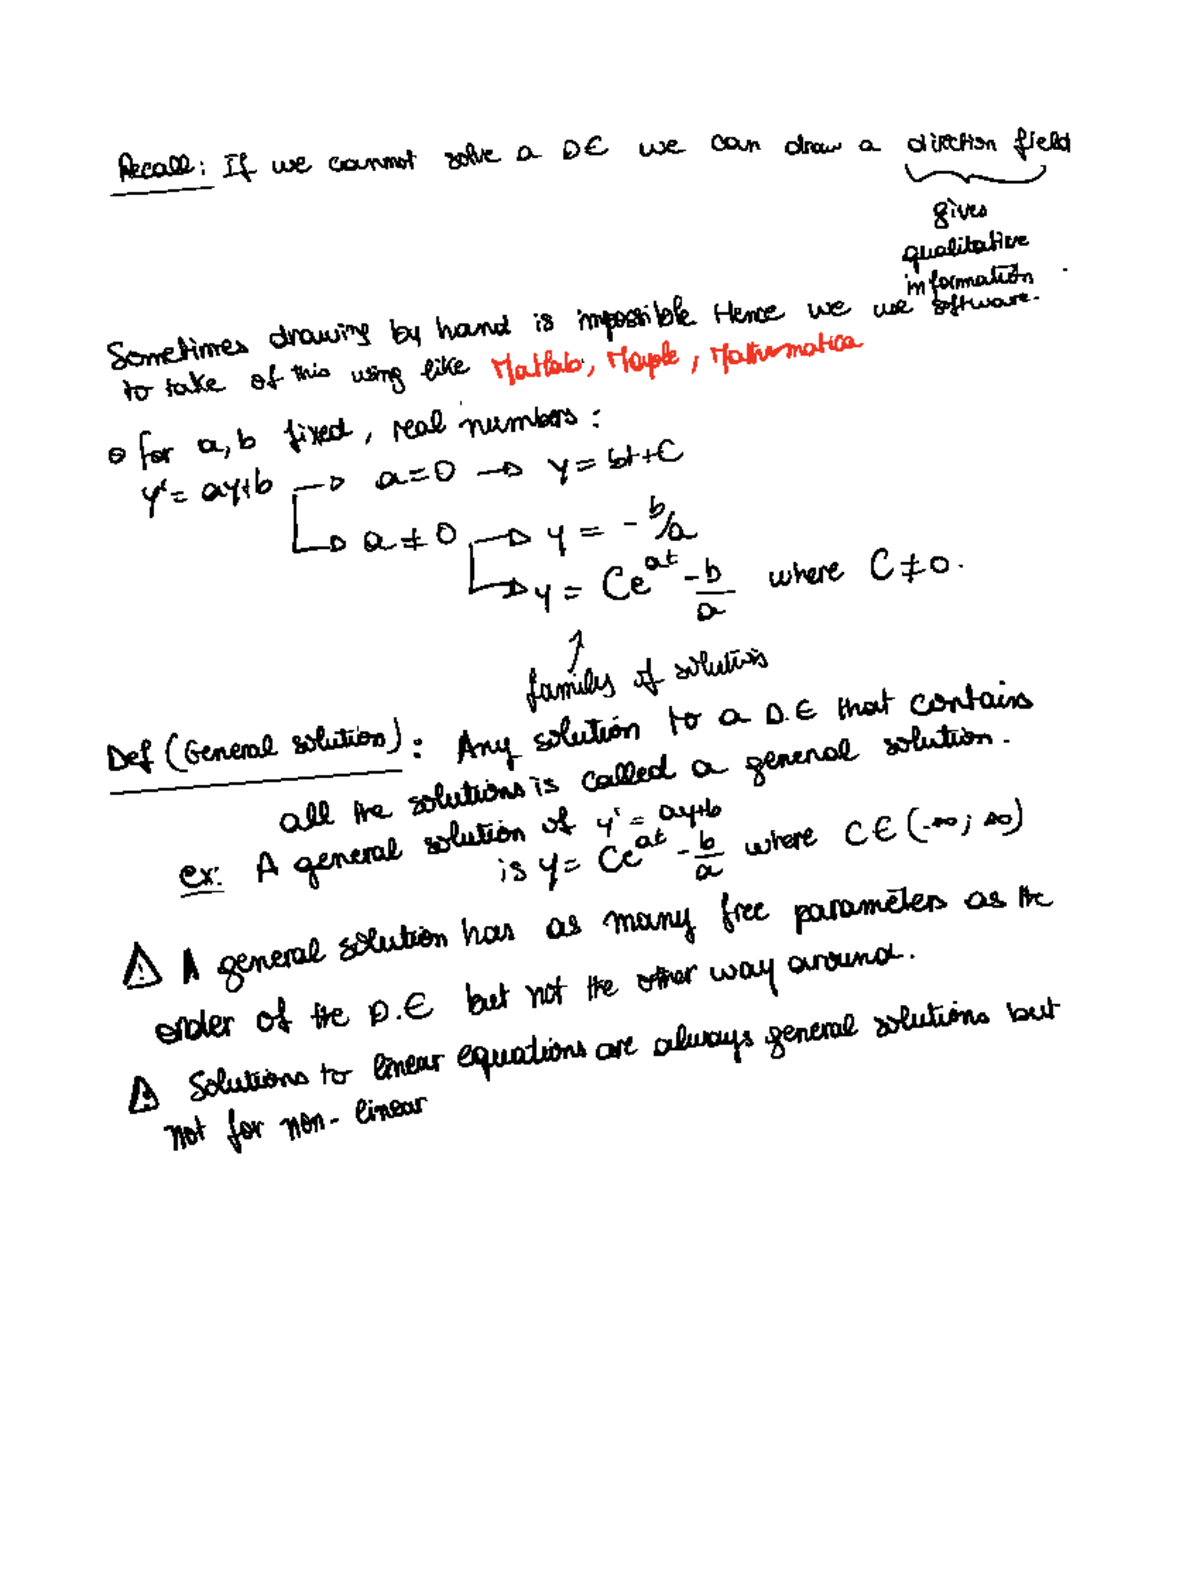 Recall: If we cannot solve a DE we can draw a direction field
gives
qualitative
information.
Sometimes drawing by hand is impossible Hence we use software.
to take of this using like Matlab, Mayple, Mathematica
⊖ for a, b fixed, real numbers:
y' = ay+b → a=0 → y = bt+C
→ a ≠ 0 → y = - b/a
→ y = Ce^{at} - b/a where C ≠ 0.
↑
family of solutions
Def (General solution): Any solution to a D.E that contains
all the solutions is called a general solution.
ex: A general solution of y' = ay+b
is y = Ce^{at} - b/a where C ∈ (-∞; ∞)
⚠ A general solution has as many free parameters as the
order of the D.E but not the other way around.
⚠ Solutions to linear equations are always general solutions but
not for non-linear